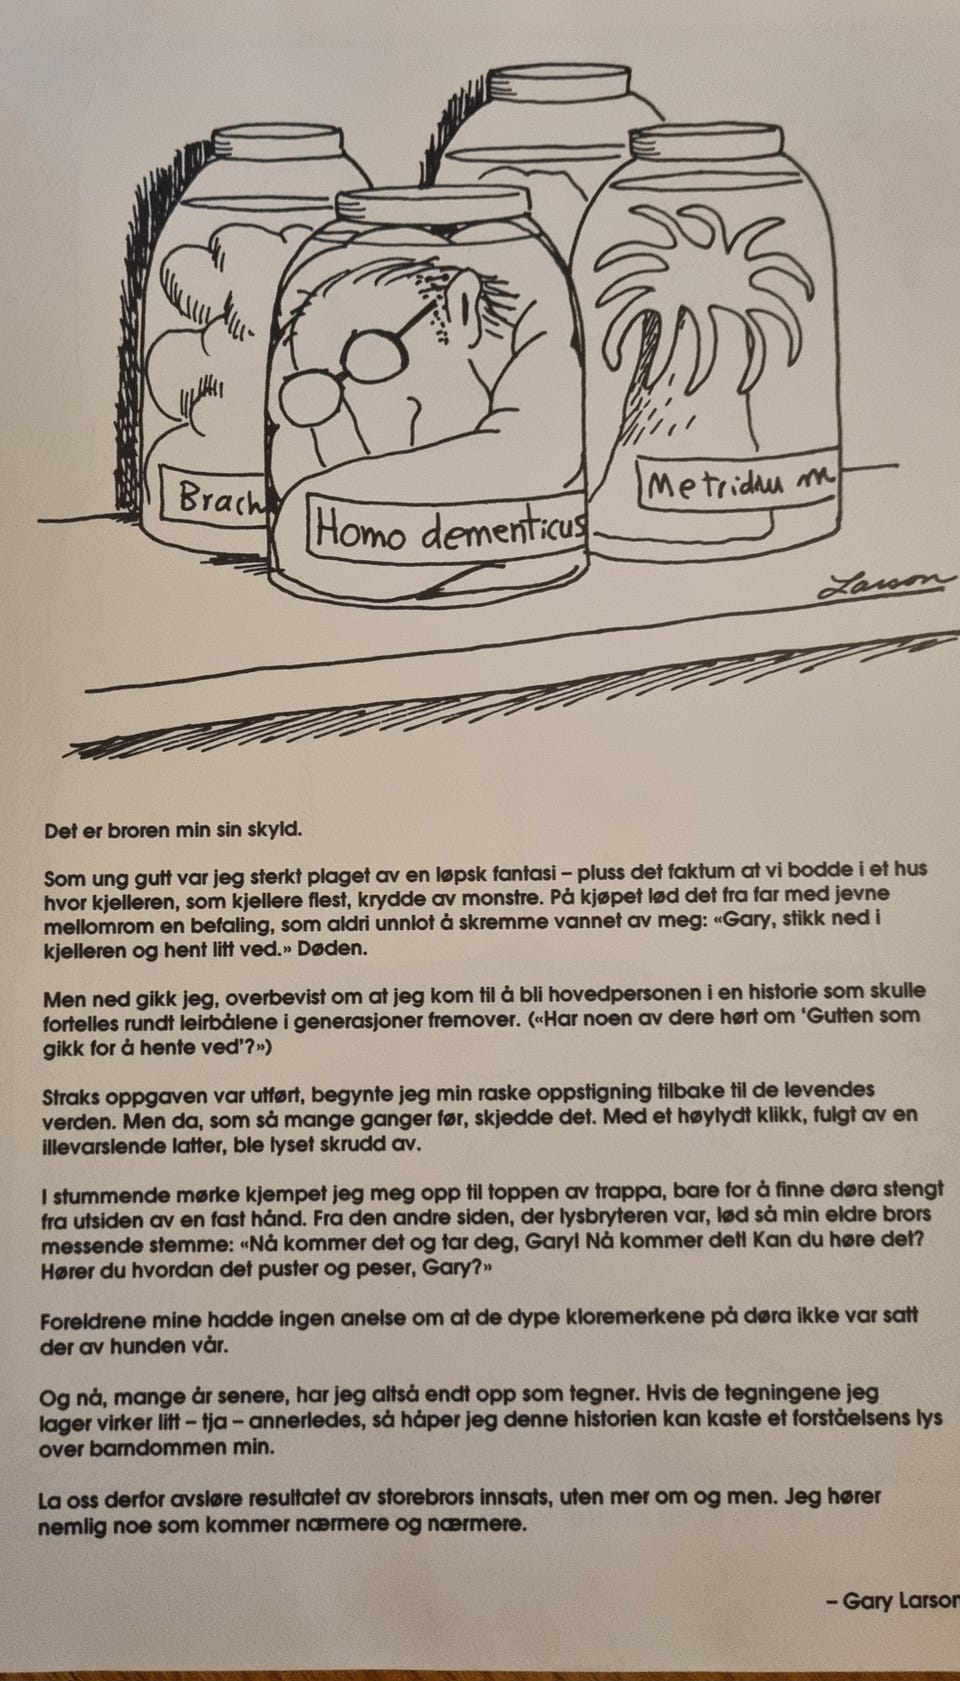 Brach
Homo dementicus
Metridiu m
Larson
Det er broren min sin skyld.
Som ung gutt var jeg sterkt plaget av en løpsk fantasi – pluss det faktum at vi bodde i et hus
hvor kjelleren, som kjellere flest, krydde av monstre. På kjøpet lød det fra far med jevne
mellomrom en befaling, som aldri unnlot å skremme vannet av meg: «Gary, stikk ned i
kjelleren og hent litt ved.» Døden.
Men ned gikk jeg, overbevist om at jeg kom til å bli hovedpersonen i en historie som skulle
fortelles rundt leirbålene i generasjoner fremover. («Har noen av dere hørt om ‘Gutten som
gikk for å hente ved’?»)
Straks oppgaven var utført, begynte jeg min raske oppstigning tilbake til de levendes
verden. Men da, som så mange ganger før, skjedde det. Med et høylydt klikk, fulgt av en
illevarslende latter, ble lyset skrudd av.
I stummende mørke kjempet jeg meg opp til toppen av trappa, bare for å finne døra stengt
fra utsiden av en fast hånd. Fra den andre siden, der lysbryteren var, lød så min eldre brors
messende stemme: «Nå kommer det og tar deg, Gary! Nå kommer det! Kan du høre det?
Hører du hvordan det puster og peser, Gary?»
Foreldrene mine hadde ingen anelse om at de dype kloremerkene på døra ikke var satt
der av hunden vår.
Og nå, mange år senere, har jeg altså endt opp som tegner. Hvis de tegningene jeg
lager virker litt – tja – annerledes, så håper jeg denne historien kan kaste et forståelsens lys
over barndommen min.
La oss derfor avsløre resultatet av storebrors innsats, uten mer om og men. Jeg hører
nemlig noe som kommer nærmere og nærmere.
– Gary Larson